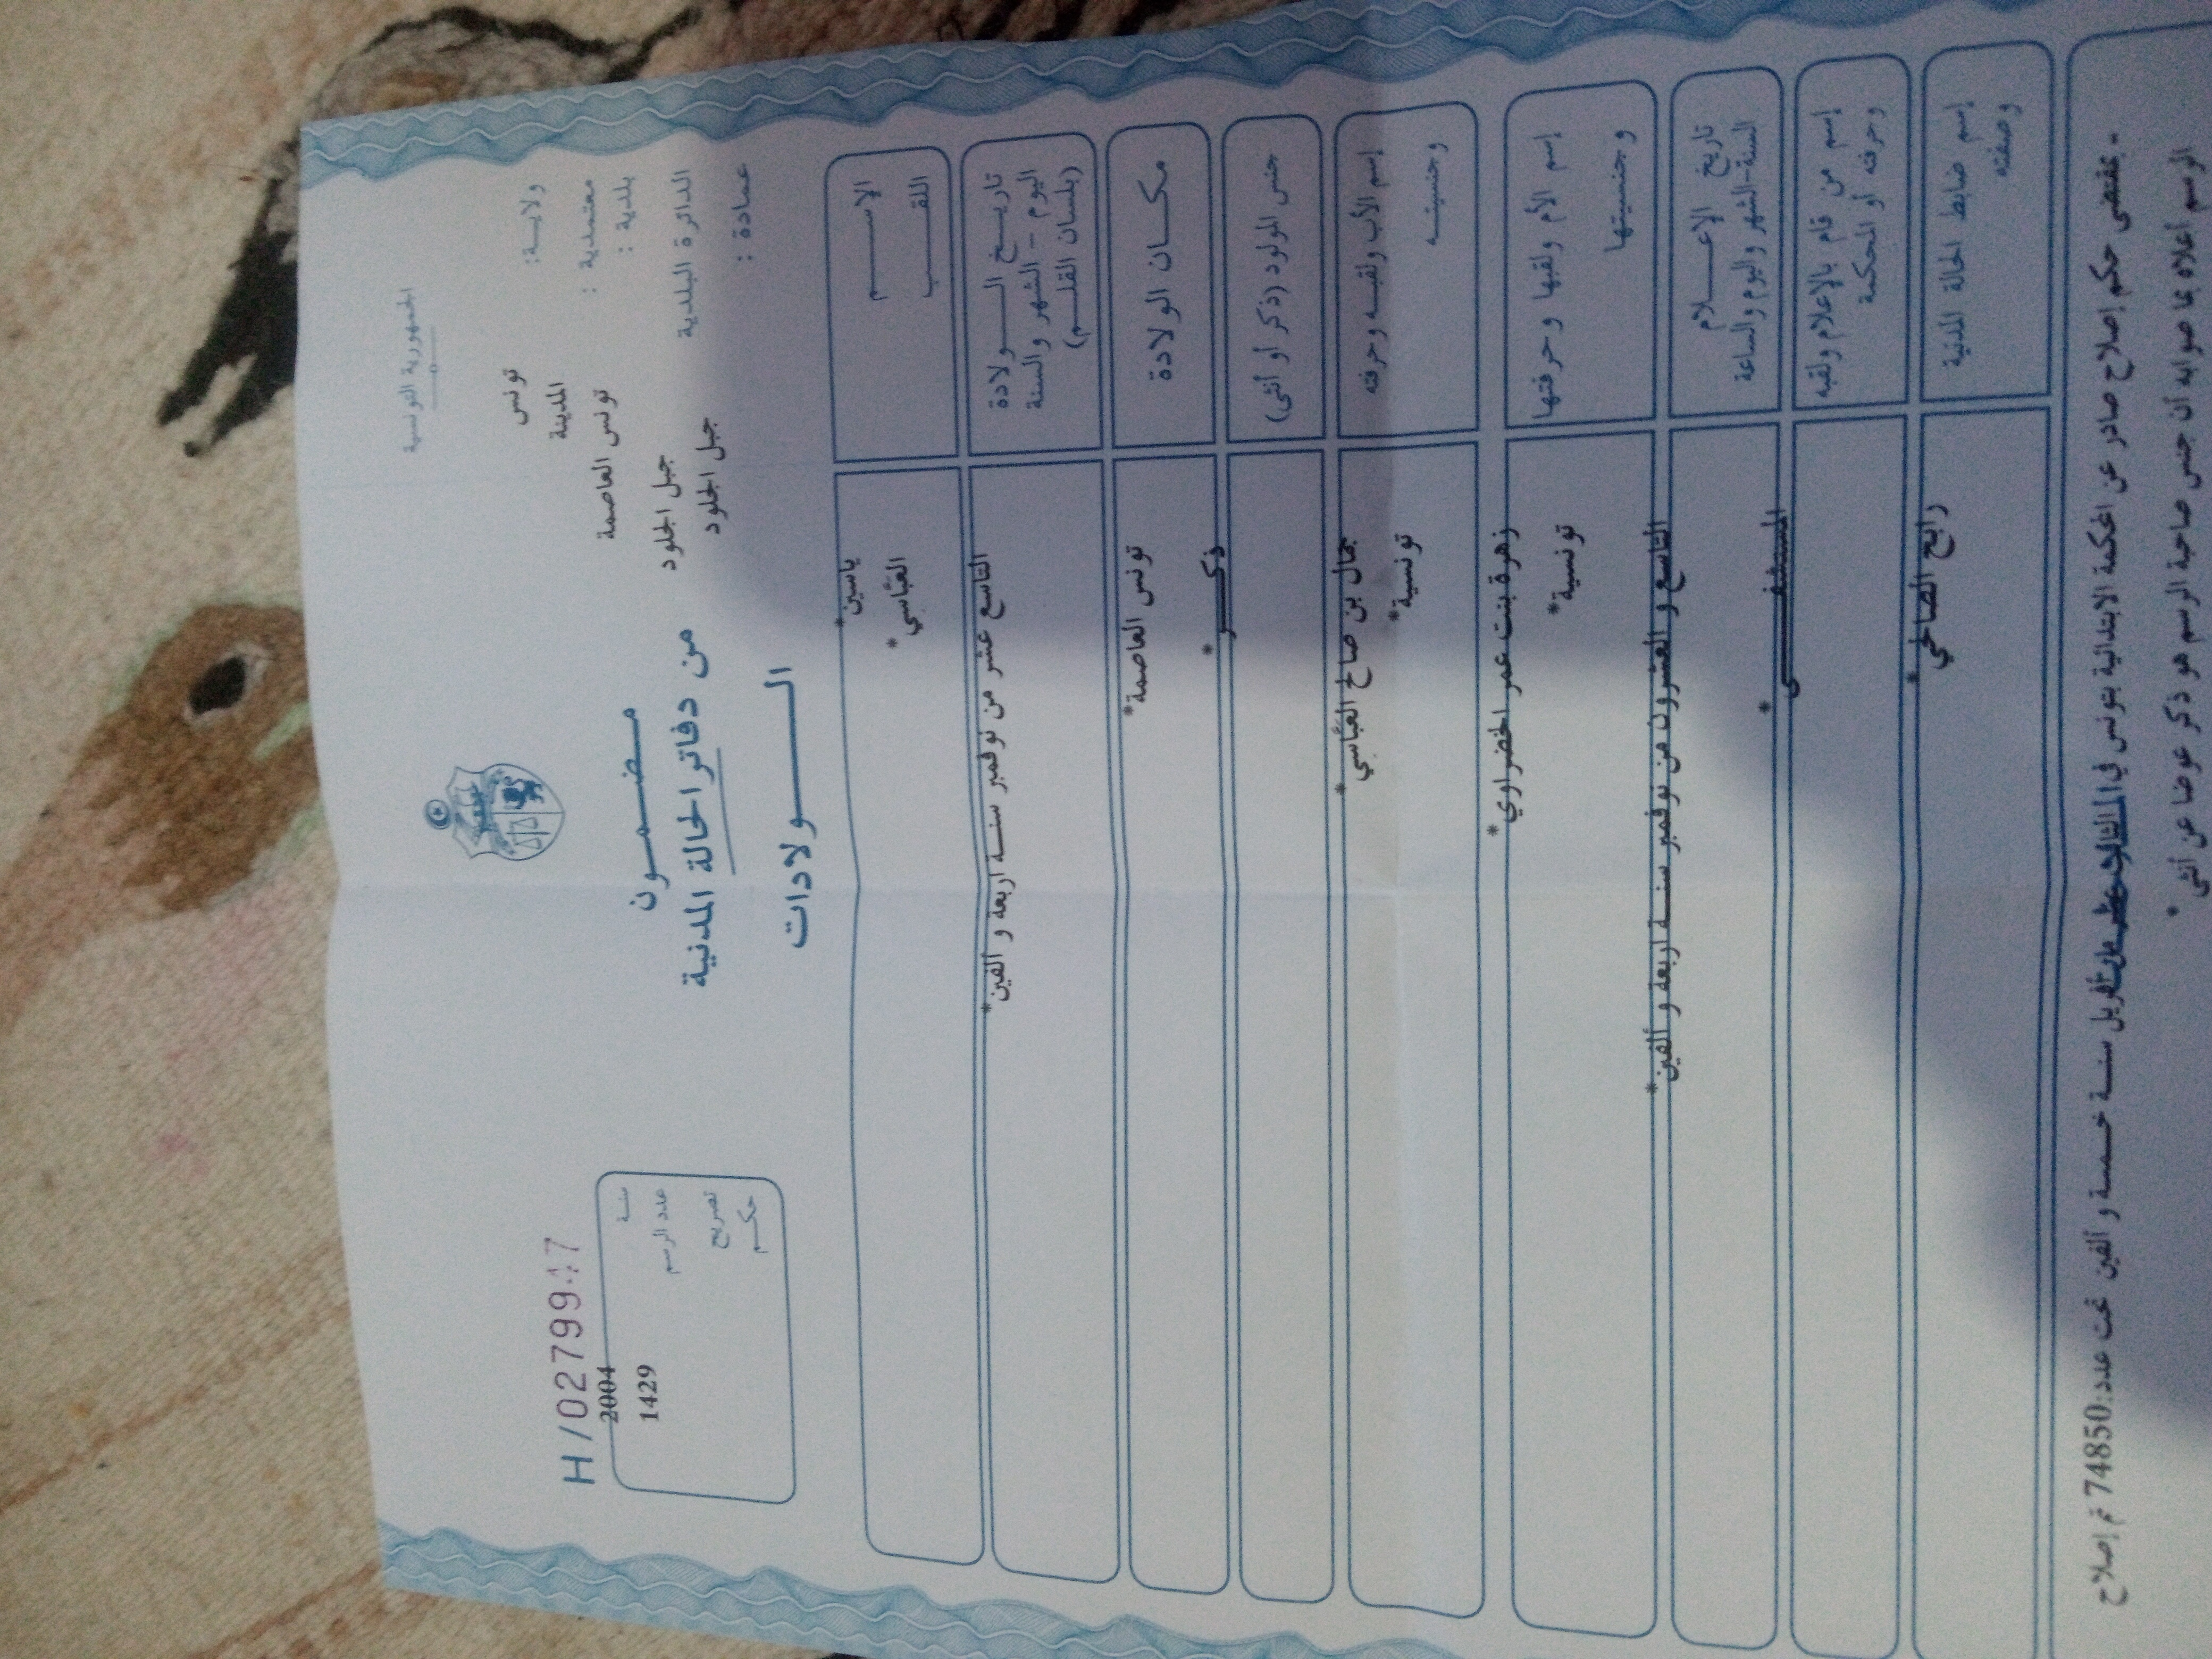 الجمهورية التونسية
H/02799417
ولايـــة: تونس
معتمدية : المدينة
بلدية : تونس العاصمة
الدائرة البلدية جبل الجلود
عمادة : جبل الجلود
مضـمـــون
من دفاتر الحالة المدنية
الـــــولادات
سنـة 2004
عدد الرسم 1429
تصريح
حكـــم
الإســـــم ياسين*
اللقـــــب العبّاسي*
تاريـــخ الــــولادة
اليوم – الشهر والسنة
(بلسان القلـــم)
التاسع عشر من نوفمبر سنــة اربعة و ألفين*
مكـــان الولادة
تونس العاصمة*
جنس المولود (ذكر أو أنثى)
ذكـــــر*
إسم الأب ولقبـه وحرفته
وجنسيتـــه
جمال بن صالح العبّاسي*
تونسية*
إسم الأم ولقبها وحرفتها
وجنسيتها
زهرة بنت عمر الخضراوي*
تونسية*
تاريخ الإعــــلام
السنة-الشهر واليوم والساعة
التاسع و العشرون من نوفمبر سنــة اربعة و ألفين*
إسم من قام بالإعلام ولقبه
وحرفته أو المحكمة
المستشفـــــى*
إسم ضابط الحالة المدنية
وصفته
رابح الصالحي*
- بمقتضى حكم إصلاح صادر عن المحكمة الابتدائية بتونس في أفريل سنــة خمسة و ألفين تحت عدد:74850 تم إصلاح
الرسم أعلاه بما صوابه أن جنس صاحبة الرسم هو ذكر عوضا عن أنثى*